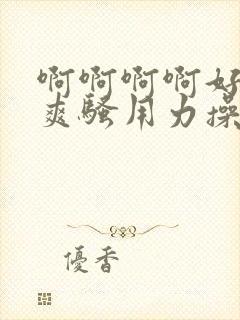 啊啊啊啊好
爽骚用力操
優香